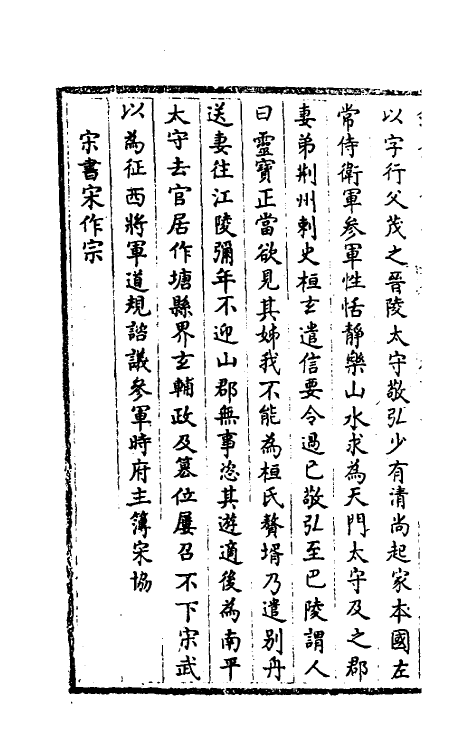 以字行父茂之晉陵太守敬弘少有清尚起家本國左
常侍衛軍參軍性恬靜樂山水求為天門太守及之郡
妻弟荆州刺史桓玄遣信要令過已敬弘至巴陵謂人
曰靈寶正當欲見其姊我不能為桓氏贅壻乃遣别舟
送妻往江陵彌年不迎山郡無事恣其遊適後為南平
太守去官居作塘縣界玄輔政及篡位屢召不下宋武
以為征西將軍道規諮議參軍時府主簿宋協
宋書宋作宗